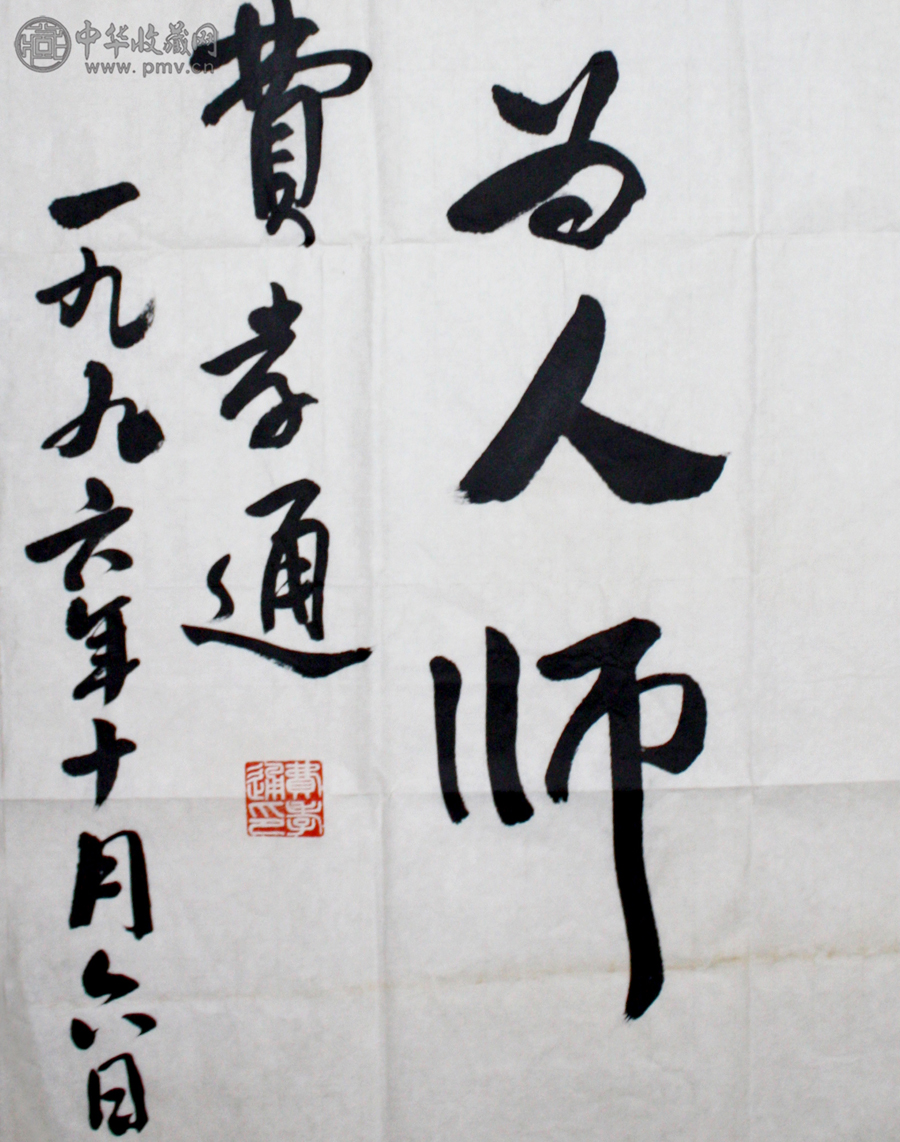 为人师
費孝通
一九九六年十月六日
費孝通印
中华收藏网
www.pmv.cn